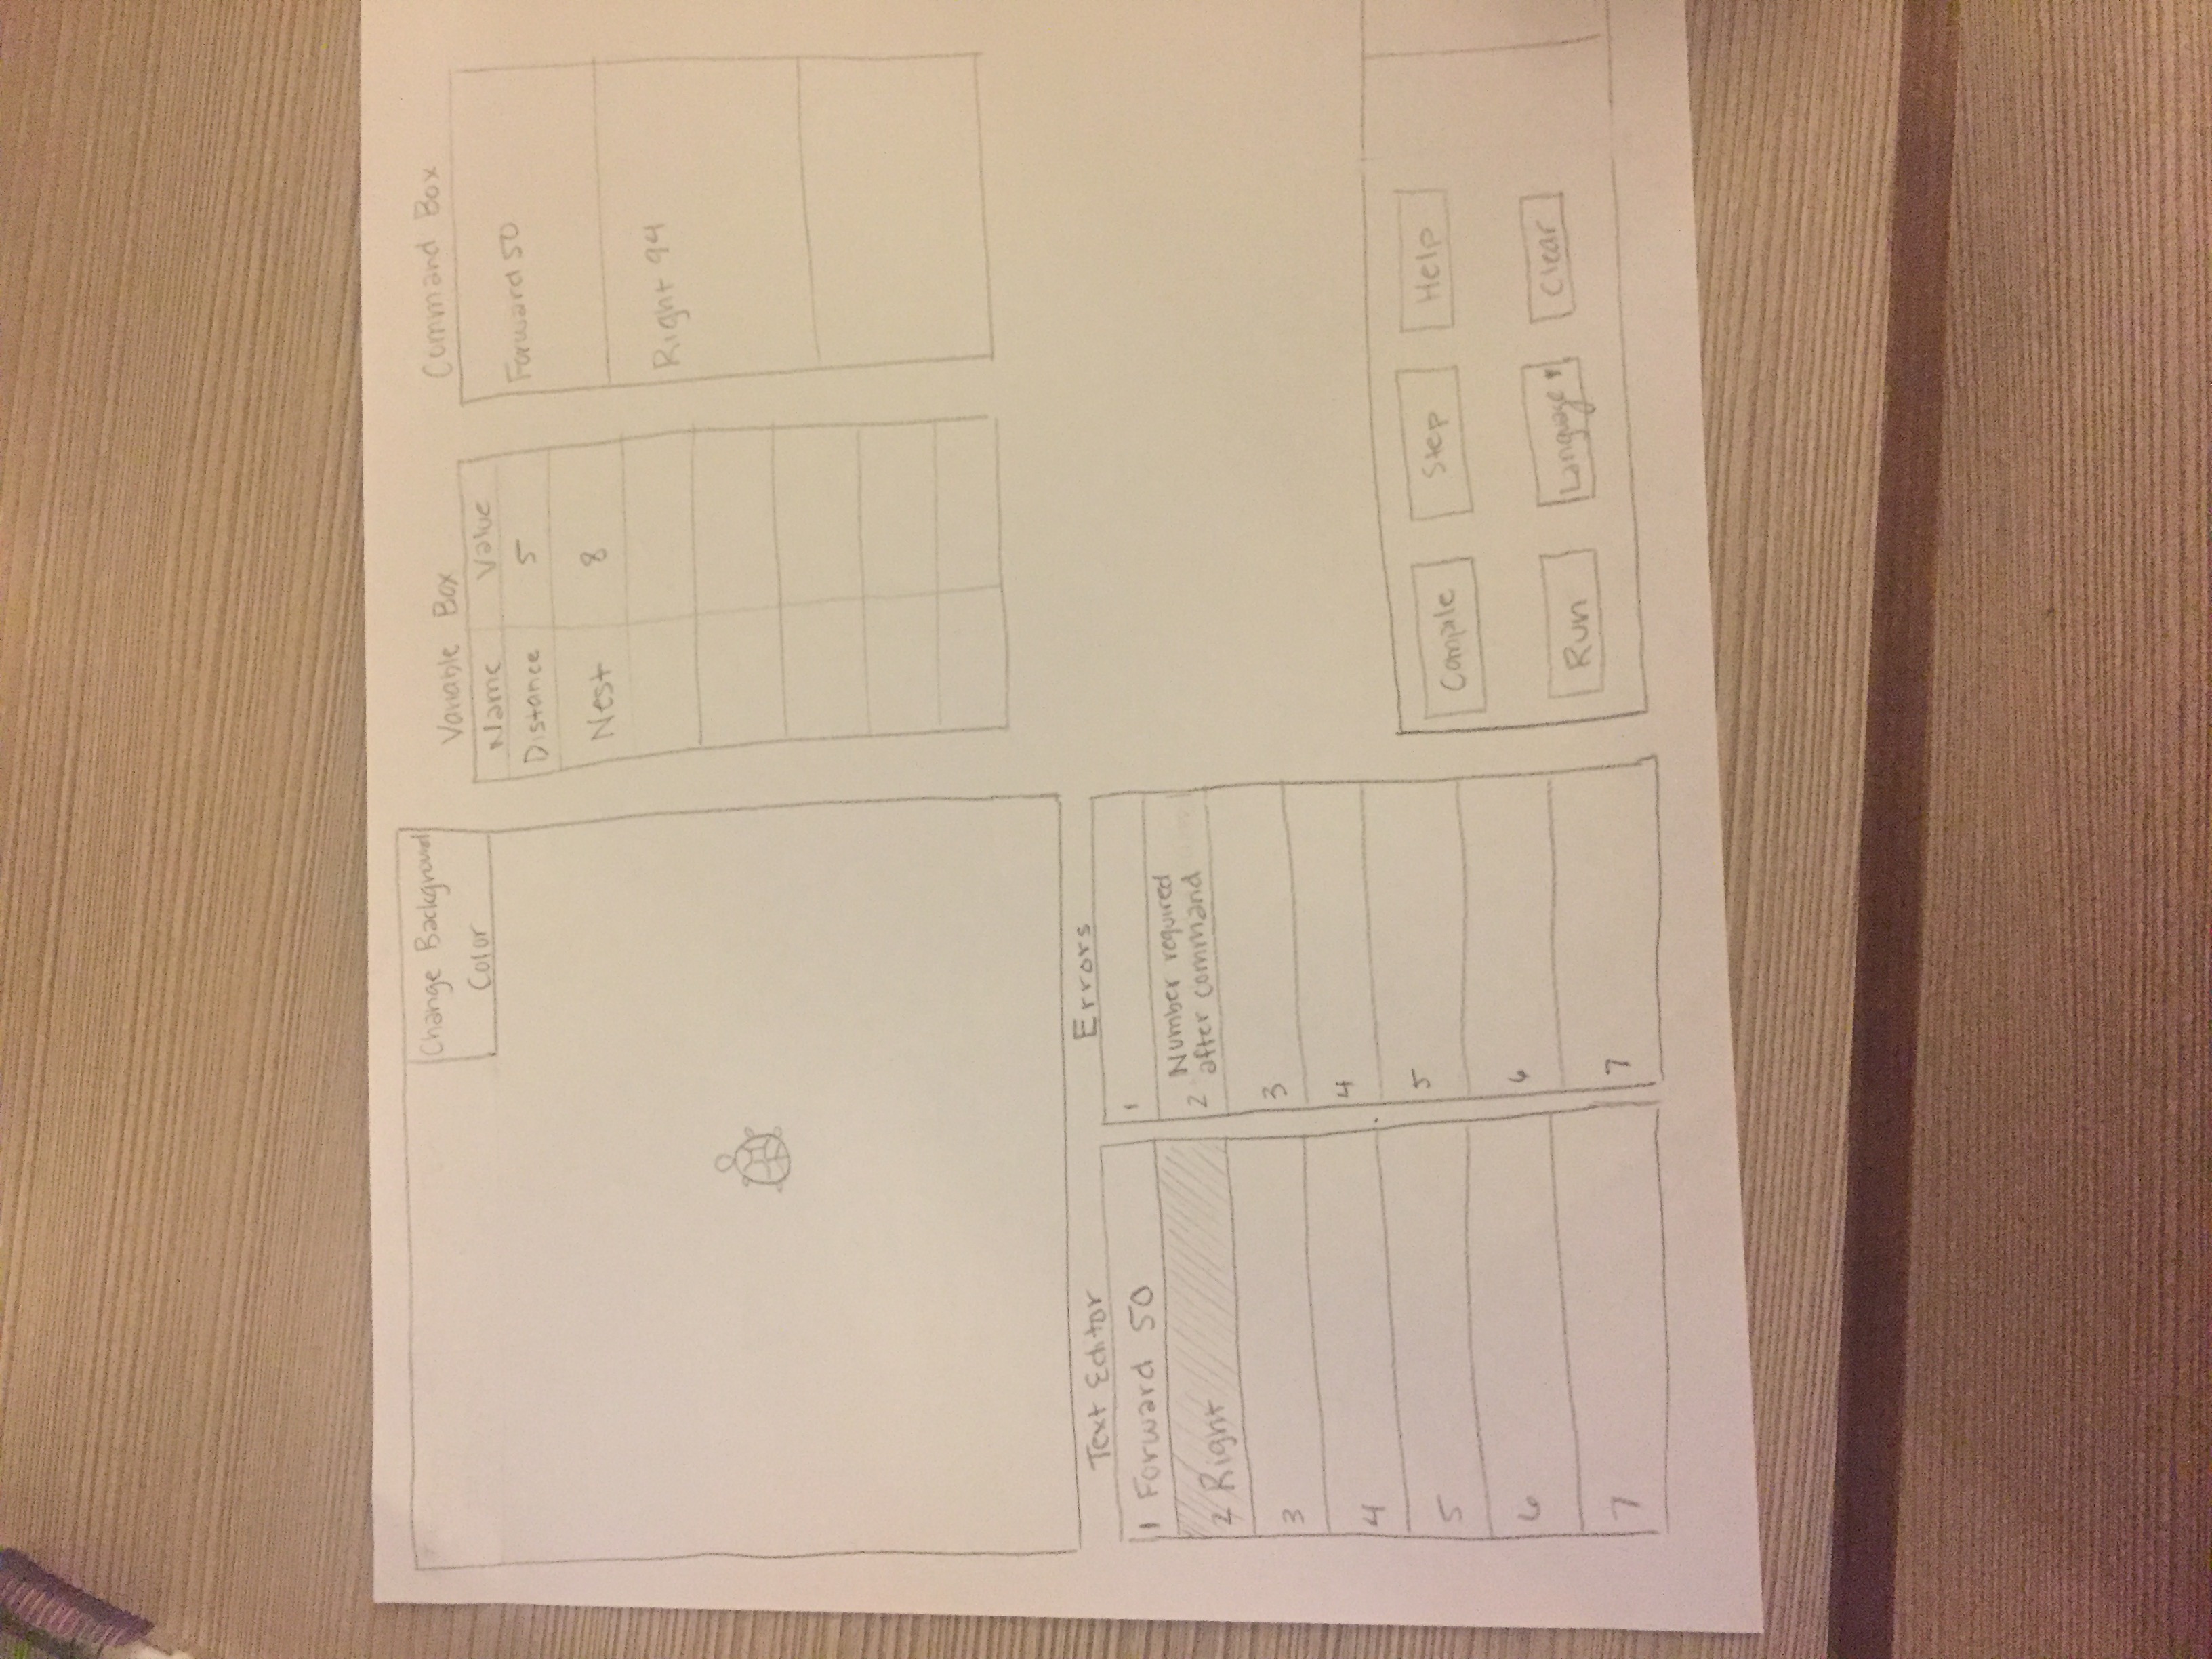 Change Background
Color
Variable Box
Name Value
Distance 5
Nest 8
Command Box
Forward 50
Right 94
Text Editor
1 Forward 50
2 Right
3
4
5
6
7
Errors
1
2 Number required
after command
3
4
5
6
7
Compile Step Help
Run Language ▾ Clear